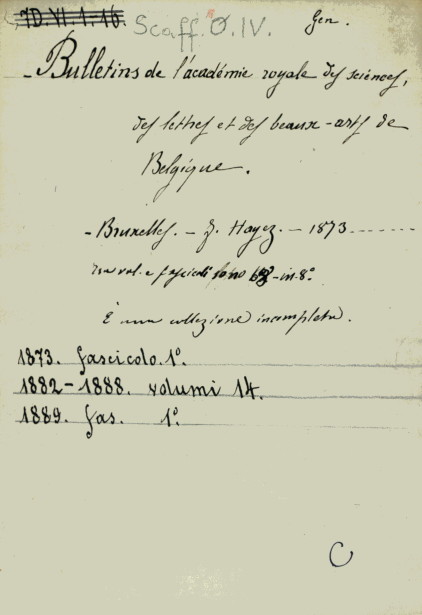 7D.VI.1.16. Scaff. O.IV. Gen.
Bulletins de l'académie royale des sciences,
des lettres et des beaux-arts de
Belgique.
- Bruxelles. - F. Hayez. - 1873 ------
vol. e fascicoli sono in-8°
È una collezione incompleta.
1873. fascicolo. 1°.
1882-1888. volumi 14.
1889. fas. 1°.
C